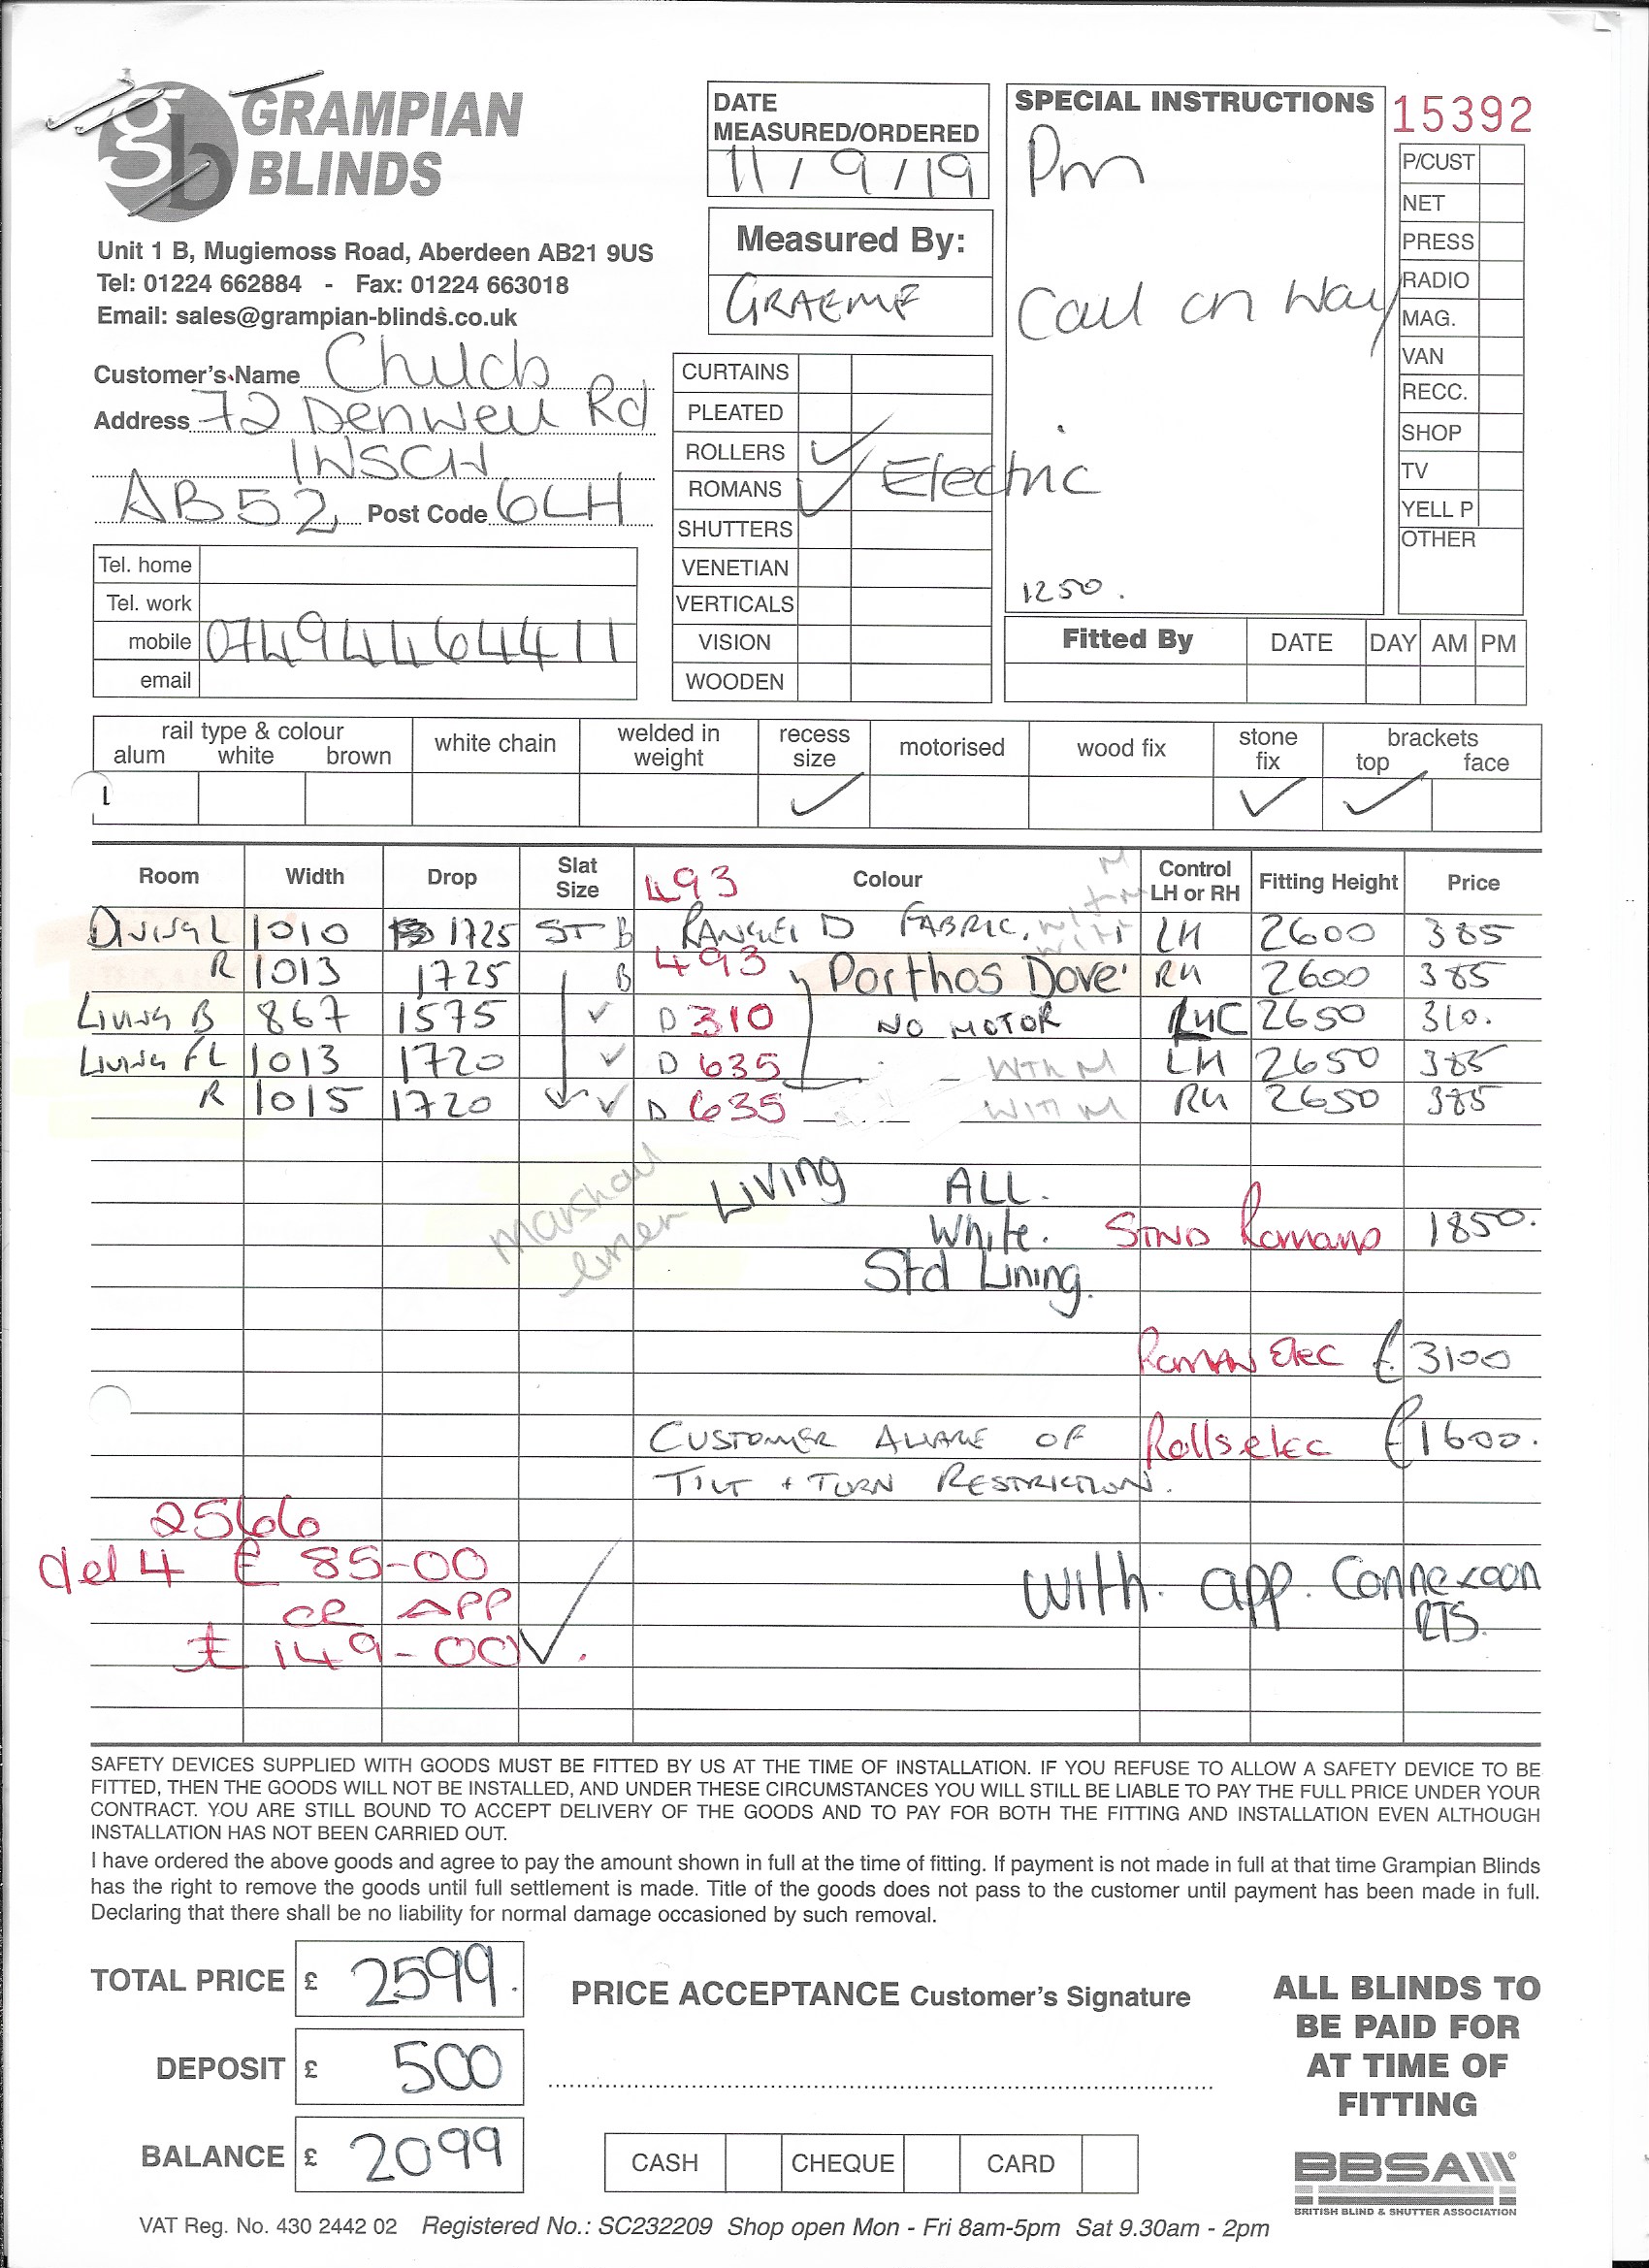 GRAMPIAN
BLINDS
Unit 1 B, Mugiemoss Road, Aberdeen AB21 9US
Tel: 01224 662884 - Fax: 01224 663018
Email: sales@grampian-blinds.co.uk
Customer's Name Chucb
Address 72 Denwell Rd
INSCH
AB52 Post Code 6LH
Tel. home
Tel. work
mobile 07494464411
email
DATE
MEASURED/ORDERED
11/9/19
Measured By:
GRAEME
CURTAINS
PLEATED
ROLLERS ✓
ROMANS ✓ Electric
SHUTTERS
VENETIAN
VERTICALS
VISION
WOODEN
SPECIAL INSTRUCTIONS
Pm
Call on Way
1250.
15392
P/CUST
NET
PRESS
RADIO
MAG.
VAN
RECC.
SHOP
TV
YELL P
OTHER
Fitted By DATE DAY AM PM
rail type & colour
alum white brown
white chain
welded in weight
recess size ✓
motorised
wood fix
stone fix ✓
brackets
top ✓ face
Room Width Drop Slat Size 493 Colour Control LH or RH Fitting Height Price
1010 1725 ST B D FABRIC. LH 2600 385
R 1013 1725 B 493 Porthos Dove RH 2600 385
Living B 867 1575 ✓ D 310 NO MOTOR 2650 310.
Living FL 1013 1720 ✓ D 635 WITH M LH 2650 385
R 1015 1720 ✓ D 635 WITH M RH 2650 385
Marshall liner
LIVING ALL.
White. STND Romans 1850.
Std Lining.
ROMAN Elec £3100
CUSTOMER AWARE OF Rolls elec £1600.
TILT + TURN RESTRICTION.
2566
del 4 £ 85-00
OR APP
£ 149-00 ✓.
With. app. Connexoon
RTS.
SAFETY DEVICES SUPPLIED WITH GOODS MUST BE FITTED BY US AT THE TIME OF INSTALLATION. IF YOU REFUSE TO ALLOW A SAFETY DEVICE TO BE
FITTED, THEN THE GOODS WILL NOT BE INSTALLED, AND UNDER THESE CIRCUMSTANCES YOU WILL STILL BE LIABLE TO PAY THE FULL PRICE UNDER YOUR
CONTRACT. YOU ARE STILL BOUND TO ACCEPT DELIVERY OF THE GOODS AND TO PAY FOR BOTH THE FITTING AND INSTALLATION EVEN ALTHOUGH
INSTALLATION HAS NOT BEEN CARRIED OUT.
I have ordered the above goods and agree to pay the amount shown in full at the time of fitting. If payment is not made in full at that time Grampian Blinds
has the right to remove the goods until full settlement is made. Title of the goods does not pass to the customer until payment has been made in full.
Declaring that there shall be no liability for normal damage occasioned by such removal.
TOTAL PRICE £ 2599.
DEPOSIT £ 500
BALANCE £ 2099
PRICE ACCEPTANCE Customer's Signature
CASH CHEQUE CARD
ALL BLINDS TO
BE PAID FOR
AT TIME OF
FITTING
BBSA
BRITISH BLIND & SHUTTER ASSOCIATION
VAT Reg. No. 430 2442 02 Registered No.: SC232209 Shop open Mon - Fri 8am-5pm Sat 9.30am - 2pm